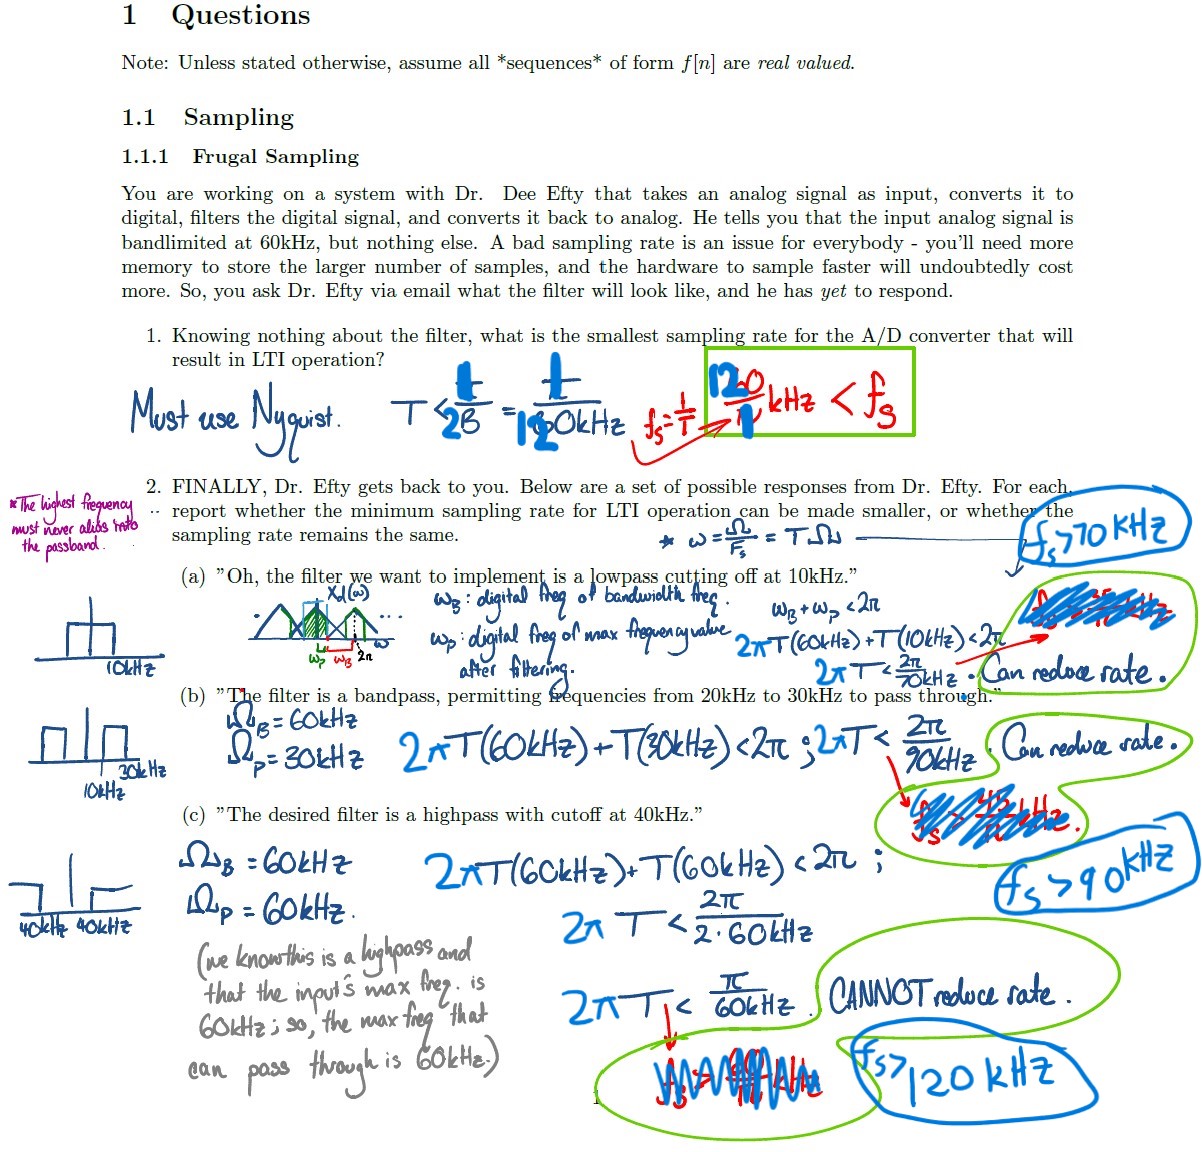 1 Questions
Note: Unless stated otherwise, assume all *sequences* of form f[n] are real valued.
1.1 Sampling
1.1.1 Frugal Sampling
You are working on a system with Dr. Dee Efty that takes an analog signal as input, converts it to
digital, filters the digital signal, and converts it back to analog. He tells you that the input analog signal is
bandlimited at 60kHz, but nothing else. A bad sampling rate is an issue for everybody - you'll need more
memory to store the larger number of samples, and the hardware to sample faster will undoubtedly cost
more. So, you ask Dr. Efty via email what the filter will look like, and he has yet to respond.
1. Knowing nothing about the filter, what is the smallest sampling rate for the A/D converter that will
result in LTI operation?
Must use Nyquist. T < 1/2B = 1/120kHz fs = 1/T 120/1 kHz < fs
2. FINALLY, Dr. Efty gets back to you. Below are a set of possible responses from Dr. Efty. For each,
report whether the minimum sampling rate for LTI operation can be made smaller, or whether the
sampling rate remains the same.
* The highest frequency
must never alias into
the passband.
* ω = Ω/Fs = TΩ
fs > 70 kHz
(a) "Oh, the filter we want to implement is a lowpass cutting off at 10kHz."
10kHz
Xd(ω)
ω
ωp ωB 2π
ωB: digital freq of bandwidth freq.
ωp: digital freq of max frequency value
after filtering.
ωB + ωp < 2π
2πT(60kHz) + T(10kHz) < 2π
2πT < 2π/70kHz . Can reduce rate.
(b) "The filter is a bandpass, permitting frequencies from 20kHz to 30kHz to pass through."
30kHz
10kHz
ΩB = 60kHz
Ωp = 30kHz
2πT(60kHz) + T(30kHz) < 2π ; 2πT < 2π/90kHz . Can reduce rate.
fs > 90 kHz
(c) "The desired filter is a highpass with cutoff at 40kHz."
40kHz 40kHz
ΩB = 60kHz
Ωp = 60kHz.
2πT(60kHz) + T(60kHz) < 2π ;
2πT < 2π/2·60kHz
2πT < π/60kHz . CANNOT reduce rate.
(we know this is a highpass and
that the input's max freq. is
60kHz; so, the max freq that
can pass through is 60kHz.)
fs > 120 kHz
1